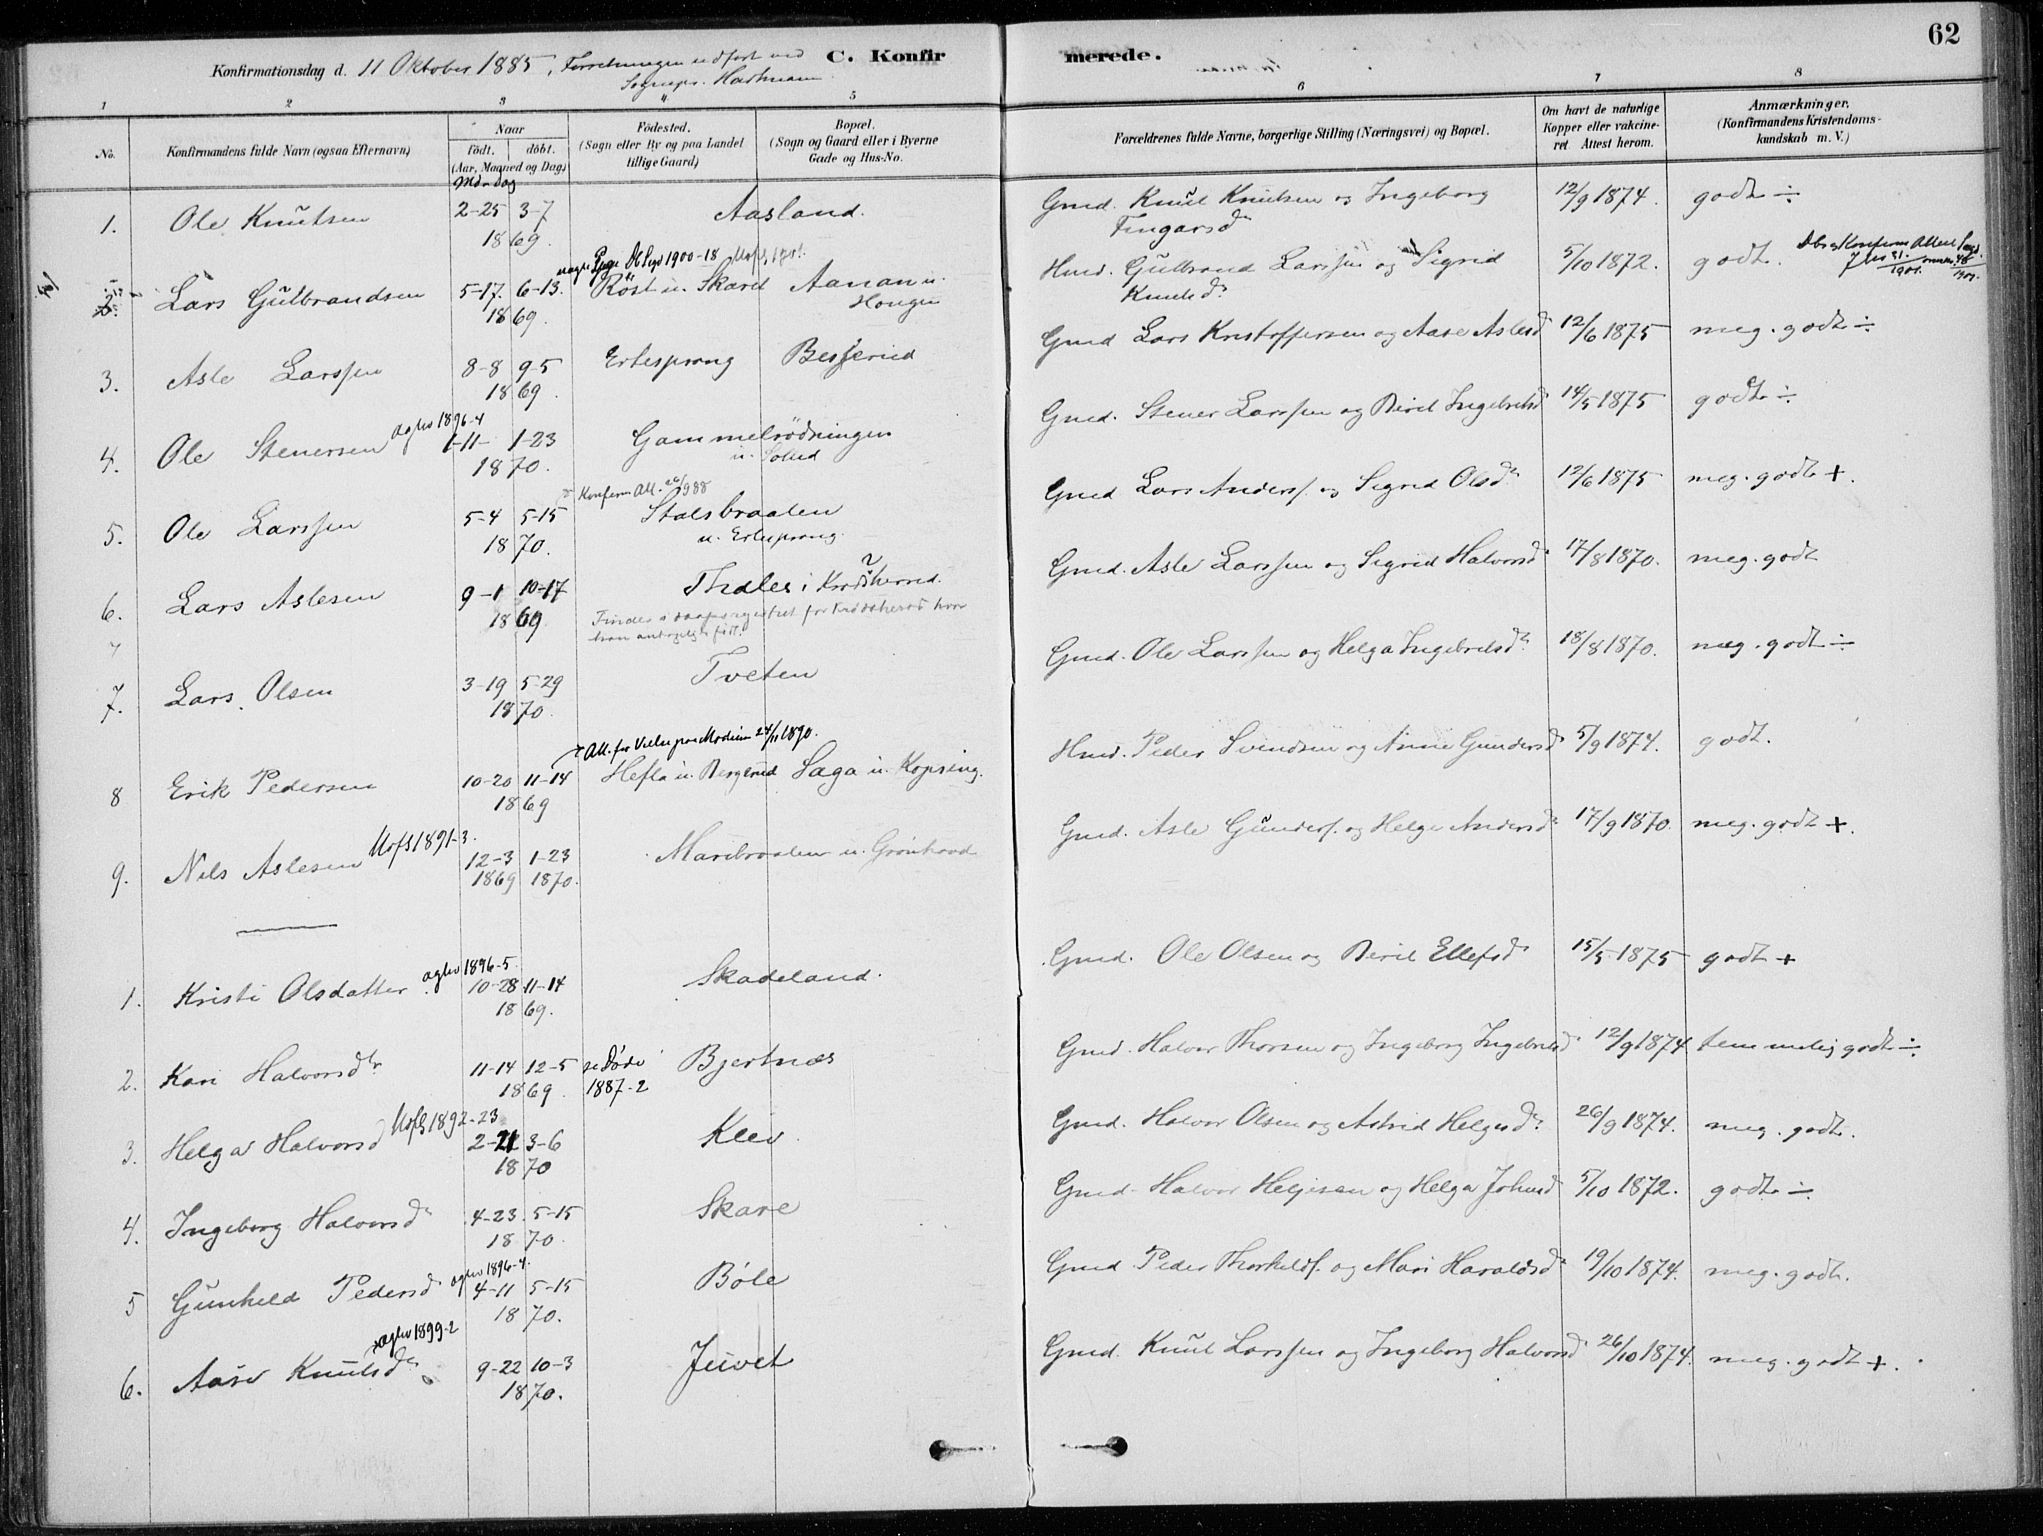 62
Konfirmationsdag d. 11 Oktober 1885, Forretningen udført ved
Sognepr. Hartmann
C. Konfirmerede.
1 2 3 4 5 6 7 8
No.
Konfirmandens fulde Navn (ogsaa Efternavn)
Naar
Födt. döbt.
(Aar, Maaned og Dag)
Md-dag
Födested.
(Sogn eller By og paa Landet
tillige Gaard)
Bopæl.
(Sogn og Gaard eller i Byerne
Gade og Hus-No.
Forældrenes fulde Navne, borgerlige Stilling (Næringsvei) og Bopæl.
Om havt de naturlige
Kopper eller vakcine-
ret Attest herom.
Anmærkninger.
(Konfirmandens Kristendoms-
kundskab m. V.)
1. Ole Knutsen 2-25 3-7 Aasland. Gmd. Knut Knutsen og Ingeborg 12/9 1874. godt ÷
1869. Fingarsd
Dbsg 1900-18
2. Lars Gulbrandsen 5-17. 6-13. Röst u. Skaret Aanan u. Hmd. Gulbrand Larssen og Sigrid 5/10 1872. godt.
1869. Hougen Knutsd
3. Asle Larssen 8-8 9-5 Ertesprang Besserud Gmd Lars Kristoffersen og Aase Aslesd 12/6 1875 meg. godt ÷
1869.
aglev 1896-4
4. Ole Stenersen 1-11- 1-23 Gammelrödningen Gmd. Stener Larssen og Berit Ingebretsd 14/5 1875 godt ÷
1870. u. Solud
Konferm Att. 26/9 88
5. Ole Larssen 5-4 5-15 Stalsbraaten Gmd Lars Anders. og Sigrid Olsd 12/6 1875 meg. godt +.
1870. u. Ertesprang.
6. Lars Aslesen 9-1 10-17 Tholes i Krödsherred. Gmd. Asle Larssen og Sigrid Halvorsd 17/8 1870. meg. godt
1869 Findes i daapsregistret for Krödsherad hvor
han antagelig er født.
7. Lars Olsen 3-19 5-29 Tveten Gmd. Ole Larssen og Helga Ingebretsd 18/8 1870. meg. godt ÷
1870.
Att. for Vielse paa Modum 24/11 1890.
8 Erik Pedersen 10-20 11-14 Hefta u. Bergerud Saga u. Kopseng. Hmd. Peder Svendsen og Anne Gundersd 5/9 1874. godt.
1869
Utfl 1891-3.
9. Nils Aslesen 12-3 1-23 Maribraaten u. Grönhovd Gmd. Asle Gunders. og Helge Andersd 17/9 1870. meg. godt +.
1869 1870.
aglev 1896-5.
1. Kristi Olsdatter 10-28 11-14 Skadeland. Gmd. Ole Olsen og Berit Ellefsd 15/5 1875 godt +
1869.
2. Kari Halvorsd 11-14 12-5 se Døde Bjertnæs Gmd. Halvor Thorsen og Ingeborg Ingebretsd 12/9 1874 temmelig godt ÷
1869. 1887-2
Utfl 1892-23
3. Helga Halvorsd 2-21 3-6 Klev. Gmd. Halvor Olsen og Astrid Helgesd. 26/9 1874. meg. godt.
1870
4. Ingeborg Halvorsd 4-23. 5-15 Skare Gmd Halvor Helgesen og Helga Johnsd 5/10 1872. godt ÷
1870.
aglev 1896-4.
5 Gunhild Pedersd 4-11 5-15 Bøle Gmd Peder Thorkilds. og Mari Haraldsd 19/10 1874. meg. godt.
1870.
aglev 1899-2
6. Aase Knutsd 9-22 10-3 Juvet Gmd. Knut Larssen og Ingeborg Halvorsd 26/10 1874. meg. godt +.
1870.